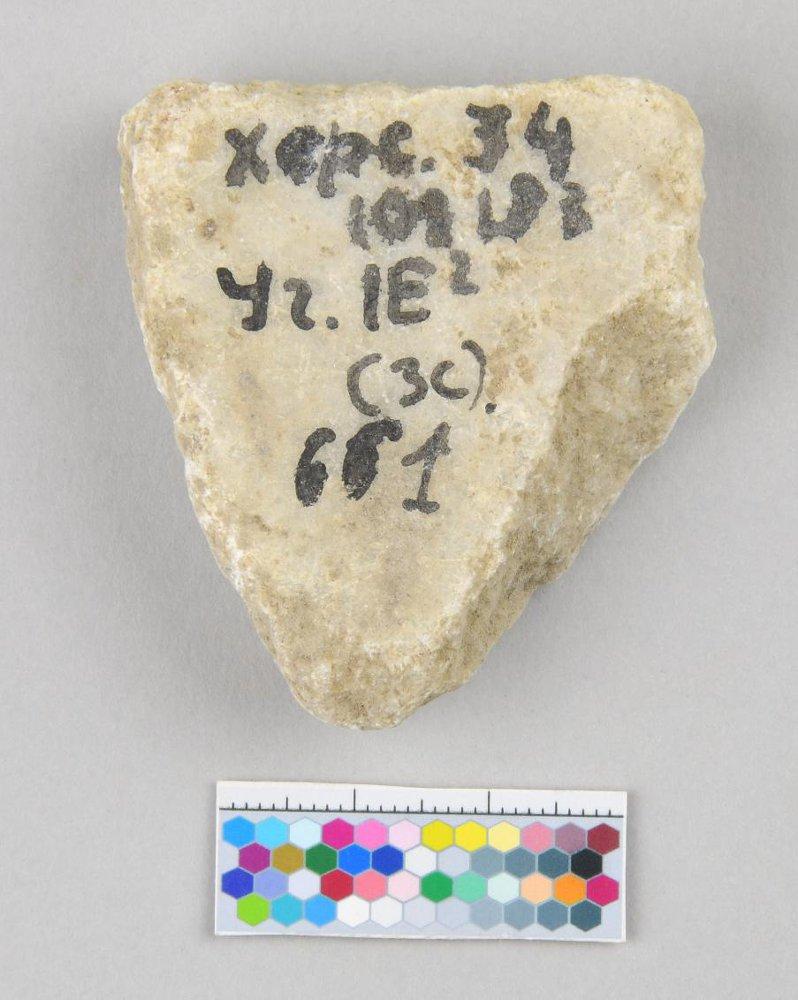 Херс. 34
109
Уч. IE²
(3С).
661